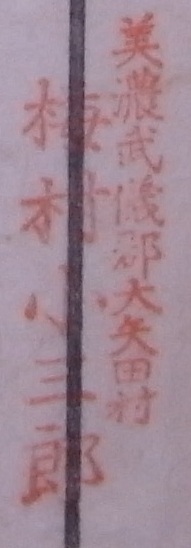 美濃武儀郡大矢田村
梅村小三郎